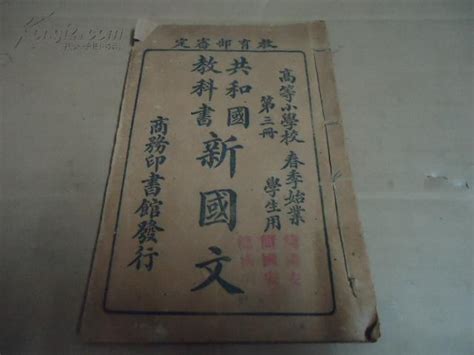 教育部審定
高等小學校 春季始業
第三冊 學生用
共和國
教科書
新國文
商務印書館發行